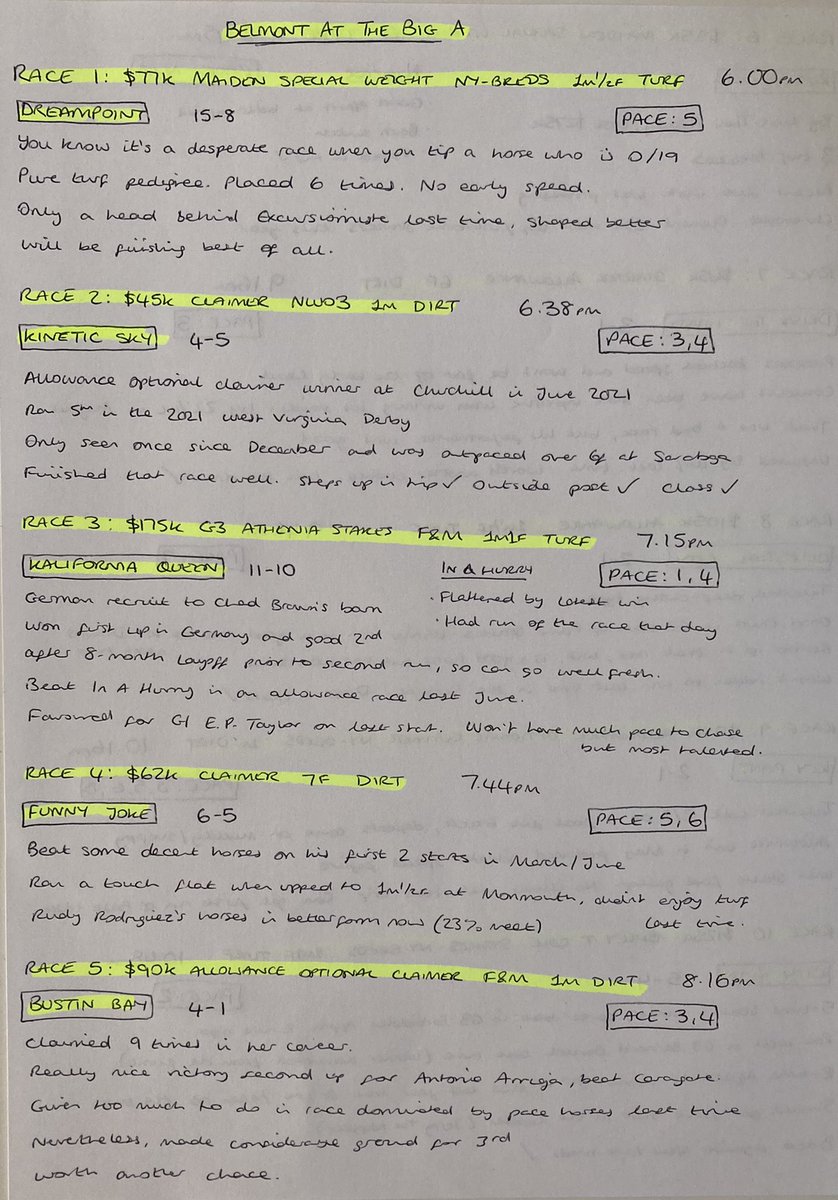 BELMONT AT THE BIG A
RACE 1: $77K MAIDEN SPECIAL WEIGHT NY-BREDS 1M1/2F TURF 6.00PM
DREAMPOINT 15-8 PACE: 5
You know it's a desperate race when you tip a horse who is 0/19
Pure turf pedigree. Placed 6 times. No early speed.
Only a head behind Excursionniste last time, shaped better
Will be finishing best of all.
RACE 2: $45K CLAIMER NW03 1M DIRT 6.38PM
KINETIC SKY 4-5 PACE: 3,4
Allowance optional claimer winner at Churchill in June 2021
Ran 5th in the 2021 West Virginia Derby
Only seen once since December and was outpaced over 6f at Saratoga
Finished that race well. Steps up in trip ✓ Outside post ✓ Class ✓
RACE 3: $175K G3 ATHENIA STAKES F&M 1M1F TURF 7.15PM
KALIFORNIA QUEEN 11-10 IN A HURRY PACE: 1,4
German recruit to Chad Brown's barn · Flattered by latest win
Won first up in Germany and good 2nd · Had run of the race that day
after 8-month layoff prior to second run, so can go well fresh.
Beat In A Hurry in an allowance race last June.
Favoured for G1 E.P. Taylor on last start. Won't have much pace to chase
but most talented.
RACE 4: $62K CLAIMER 7F DIRT 7.44PM
FUNNY JOKE 6-5 PACE: 5,6
Beat some decent horses on his first 2 starts in March/June
Ran a touch flat when upped to 1M1/2F at Monmouth, didn't enjoy turf
Rudy Rodriguez's horses in better form now (23% meet) last time.
RACE 5: $90K ALLOWANCE OPTIONAL CLAIMER F&M 1M DIRT 8.16PM
BUSTIN BAY 4-1 PACE: 3,4
Claimed 9 times in her career.
Really nice victory second up for Antonio Arriaga, beat Coragate.
Given too much to do in race dominated by pace horses last time
Nevertheless, made considerable ground for 3rd
Worth another chance.